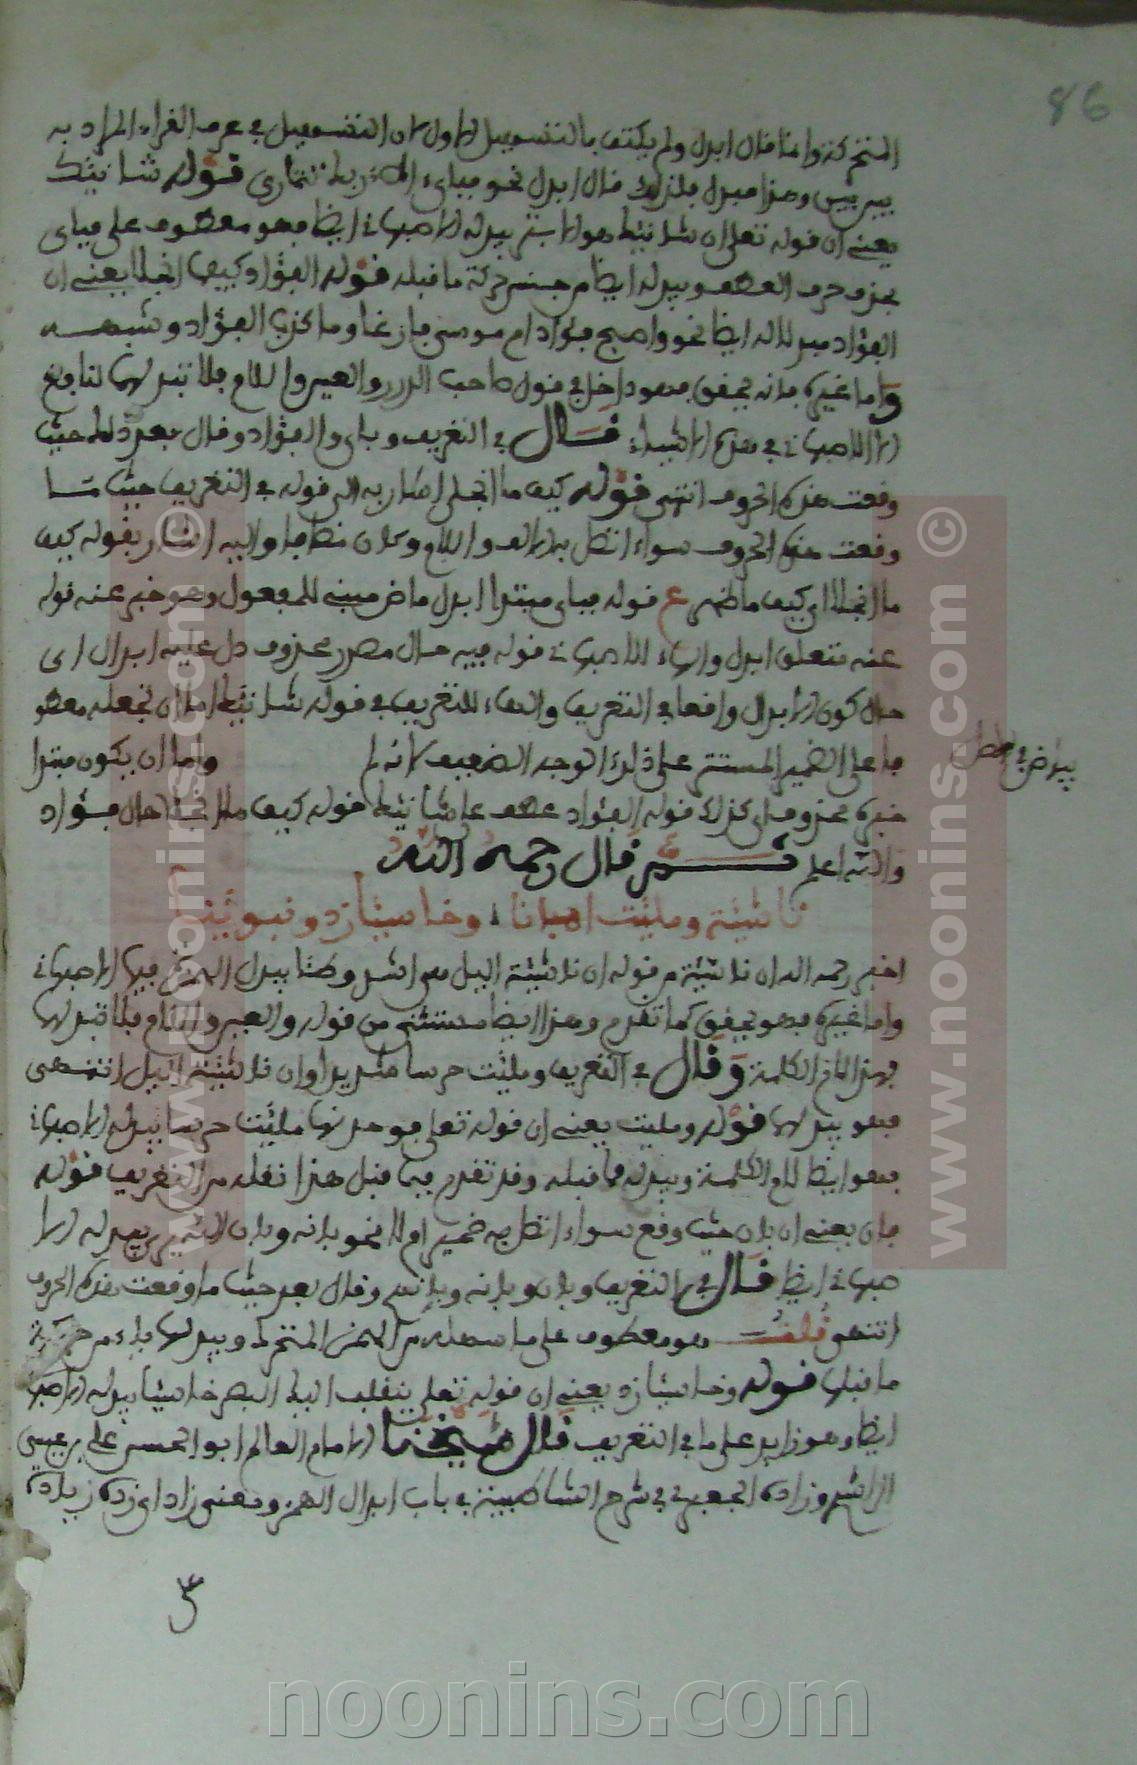 86
المتحركة وانما قال ابدل ولم يكتف بالتسهيل الاول لان التسهيل في عرف القراء المراد به
بين بين وهذا مبدل فلذلك قال ابدل نحو فبأي الاء ربك تتمارى قوله شانئك
يعني ان قوله تعلى ان شانئك هو الابتر يبدله الاصبهاني ايضا فهو معطوف على فبأي
بحذف حرف العطف ويبدله ايضا من جنس حركة ما قبله قوله الفؤاد كيف انجلا يعني ان
الفؤاد مبدل له ايضا نحو واصبح فؤاد ام موسى فارغا وما كذب الفؤاد وشبهه
واما غيره فانه يحقق فهو داخل في قول صاحب الدرر والعين واللام فلا تبدلهما لنافع
الا الاصبهاني في هذه الاشياء قال في التعريف وبأي والفؤاد وقال بعد ذلك حيث
وقعت هذه الحروف انتهى قوله كيف ما انجلى اشار به الى قوله في التعريف حيث ما
وقعت هذه الحروف سواء اتصل به الالف واللام وكان مضافا واليه اشار بقوله كيف
ما انجلا اي كيف ما ظهر ع قوله فبأي مبتدا ابدل ماض مبني للمفعول وهو خبر عنه قوله
عنه متعلق ابدل والهاء للاصبهاني قوله فيه حال مصدر محذوف دل عليه ابدال اي
حال كون الابدال واقعا في التعريف والهاء للتعريف في قوله شانئك اما ان تجعله معطو
فا على الضمير المستتر على ذلك الوجه الضعيف لانه لم واما ان يكون مبتدا
خبره محذوف اي كذلك قوله الفؤاد عطف على شانئك قوله كيف ما انجلا حال فؤاد
والله اعلم ثم قال رحمه الله
بياض في الاصل
ناشئة وملئت فبانا وخاسئا زد ونبوئنا
اخبر رحمه الله ان ناشئة من قوله ان ناشئة اليل هي اشد وطئا يبدل الهمز فيها الاصبهاني
واما غيره فهو يحقق كما تقدم وهذا ايضا مستثنى من قوله والعين واللام فلا تبدلهما
فهذا لام الكلمة وقال في التعريف وملئت حرسا شديدا وان ناشئة اليل انتهى
فهو يبدلها قوله وملئت يعني ان قوله تعلى فوجدنها ملئت حرسا يبدله الاصبهاني
فهو ايضا لام الكلمة ويبدله مما قبله وقد تقدم فيما قبل هذا نقله من التعريف قوله
فان يعني ان بان حيث وقع سواء اتصل به ضمير ام لا نحو بانه وبان الله يبدله الا
صبهاني ايضا قال في التعريف وبان وبانه وبانهم وقال بعد حيث ما وقعت هذه الحروف
انتهى قلت هو معطوف على ما سهله من الهمز المتحرك ويبدلها ياء من حركة
ما قبلها قوله وخاسئا زد يعني ان قوله تعلى ينقلب اليك البصر خاسئا يبدله الاصبهاني
ايضا وهو زايد على ما في التعريف قال شيخنا الامام العالم ابو الحسن علي بن عيسى
الراشدي وزاده الجعبري في شرح الشاطبية في باب ابدال الهمز ومعنى زاد اي زده زيادة
© www.noonins.com
© www.noonins.com
noonins.com